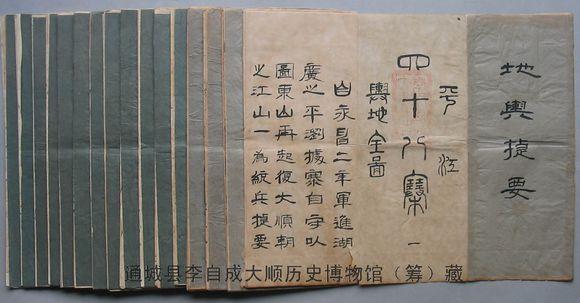 地輿捷要
平江
四十八寨 一
輿地全圖
自永昌二年軍進湖
廣之平瀏據寨自守以
圖東山再起復大順朝
之江山一為統兵捷要
通城县李自成大顺历史博物馆（筹）藏